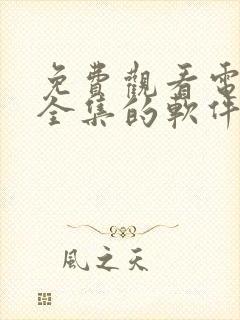 免費觀看電
全集的軟件
風之天